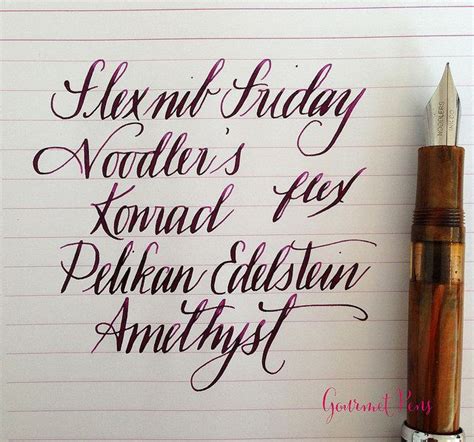 Flex nib Friday
Noodler's
Konrad flex
Pelikan Edelstein
Amethyst
NOODLER'S
INK CO.
Gourmet Pens